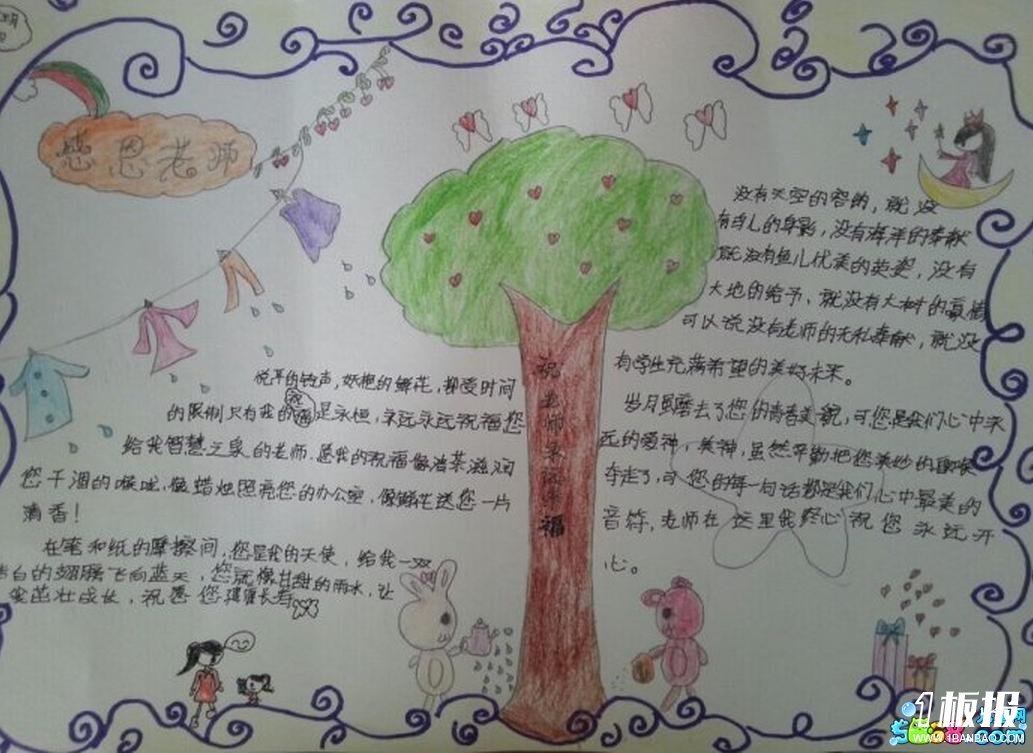 感恩老师
没有天空的容纳，就没
有鸟儿的身影，没有海洋的奉献
就没有鱼儿优美的英姿，没有
大地的给予，就没有大树的豪情
可以说没有老师的无私奉献，就没
有学生充满希望的美好未来。
岁月虽磨去了您的青春美貌，可您是我们心中永
远的爱神，美神，虽然辛勤把您美妙的歌喉
夺走了，可您的每一句话都是我们心中最美的
音符，老师在这里我终心祝您永远开
心。
悦耳的铃声，妖艳的鲜花，都受时间
的限制只有我的祝福是永恒，永远永远祝福您
给我智慧之泉的老师，愿我的祝福像清茶滋润
您干涸的喉咙，像蜡烛照亮您的办公室，像鲜花送您一片
清香！
在笔和纸的摩擦间，您是我的天使，给我一双
洁白的翅膀飞向蓝天，您就像甘甜的雨水，让
我茁壮成长，祝愿您健康长寿
祝老师幸福
板报
WWW.1BANBAO.COM